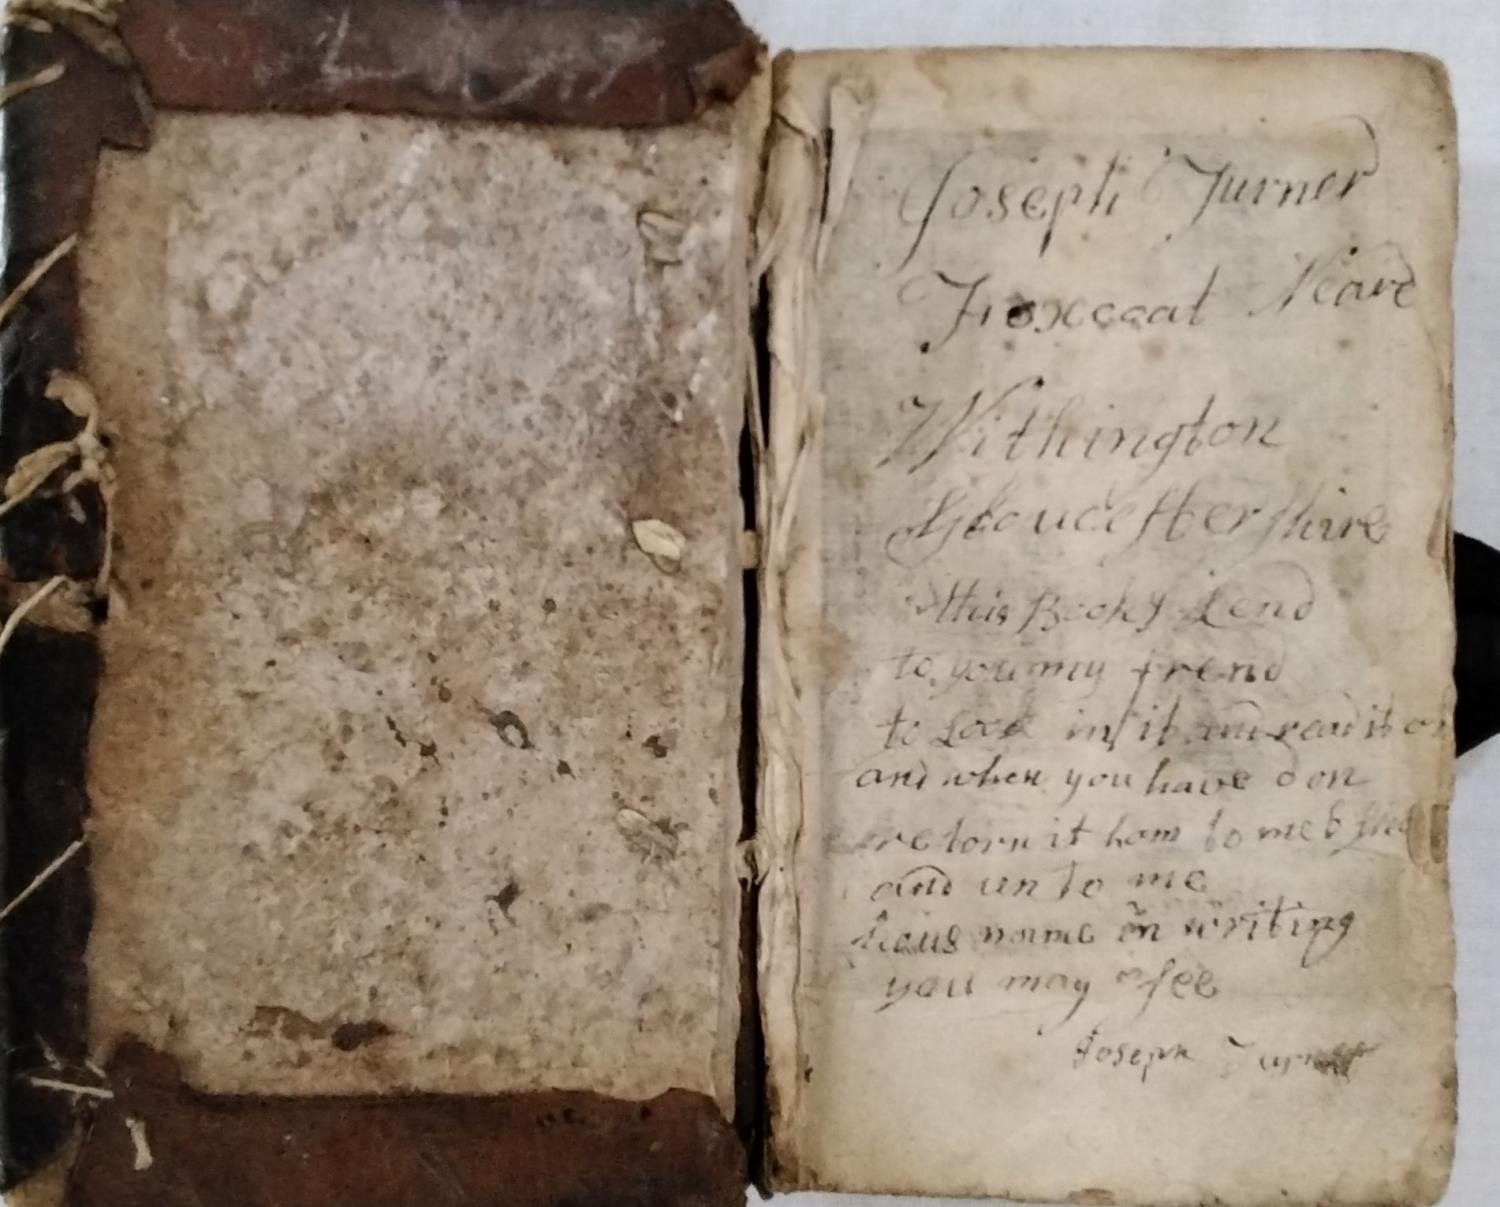 Joseph Turner
Foxcoat Neare
Withington
Gloucestershire
this Book I Lend
to you my frend
to Look in it and read it or
and when you have don
retorn it hom to me
and un to me
name in writing
you may see
Joseph Turner